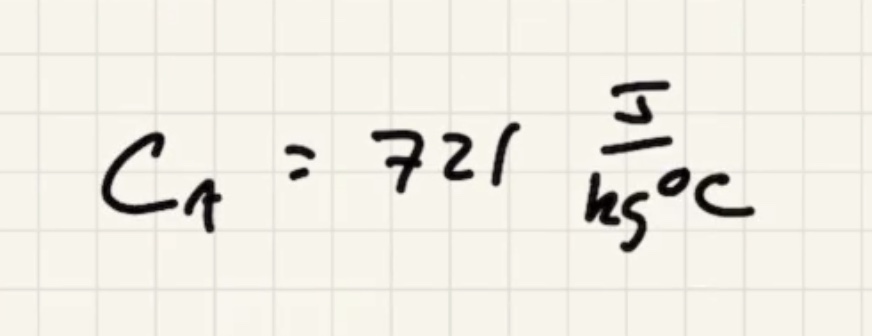 C_A = 721 J/kg°C